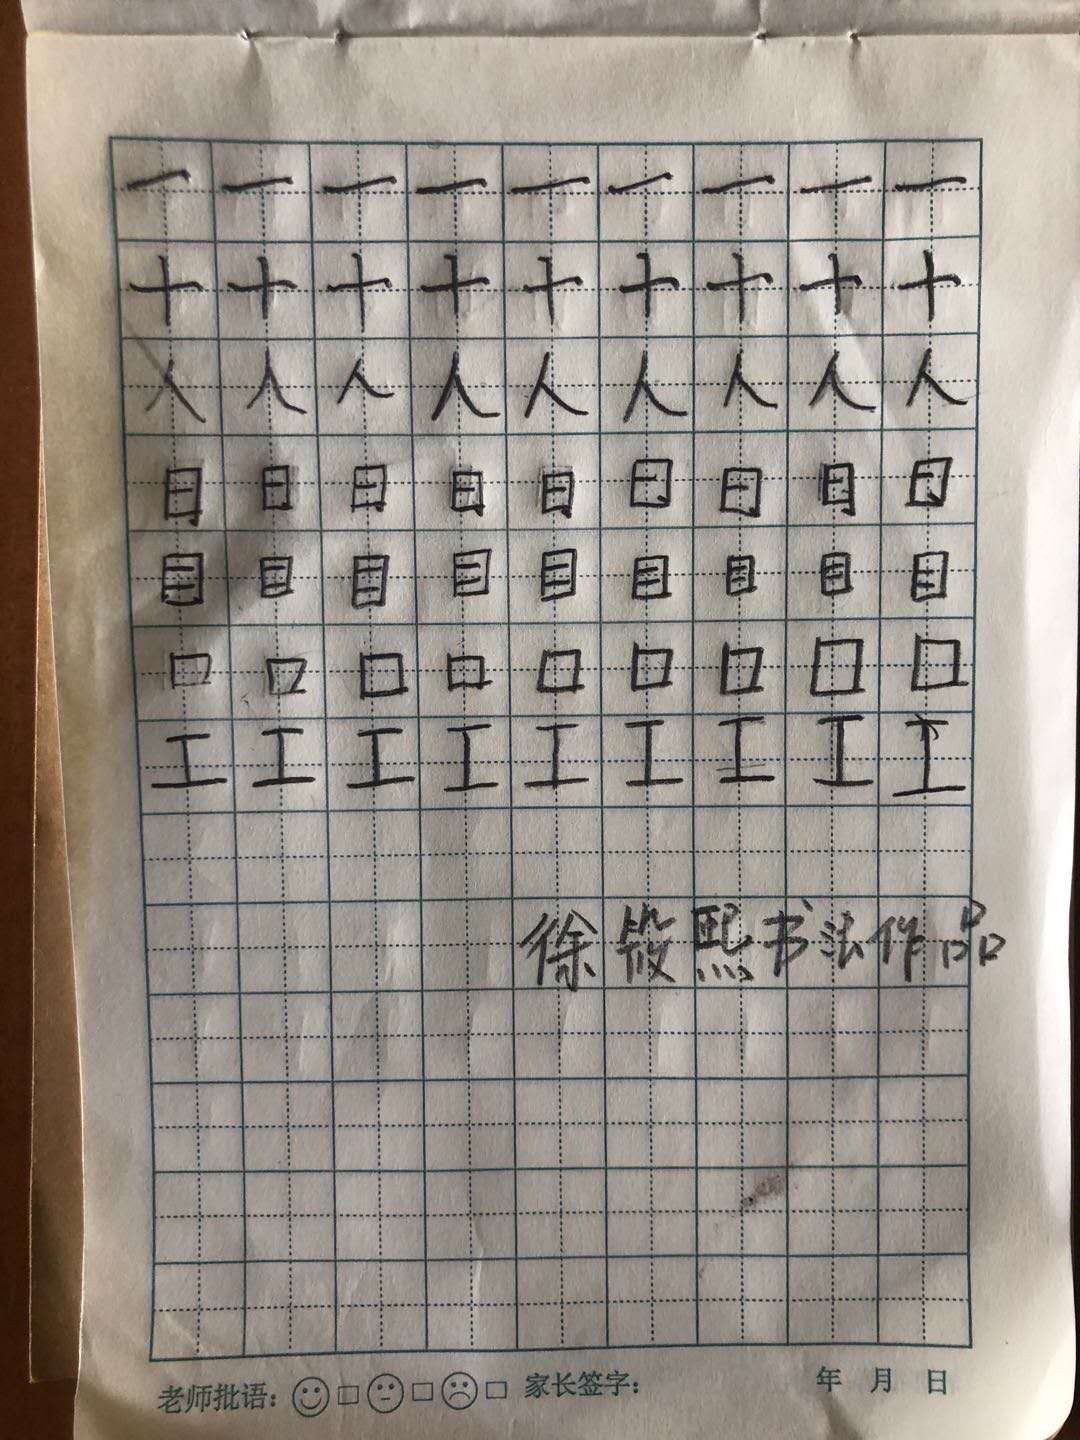 一一一一一一一一一
十十十十十十十十十
人人人人人人人人人
日日日日日日日日日
目目目目目目目目目
口口口口口口口口口
工工工工工工工工工
徐筱熙书法作品
老师批语: 家长签字: 年 月 日